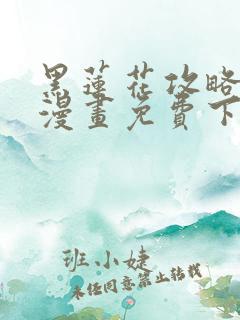 黑蓮花攻略
漫畫免費下
班小婕
未经同意禁止转载